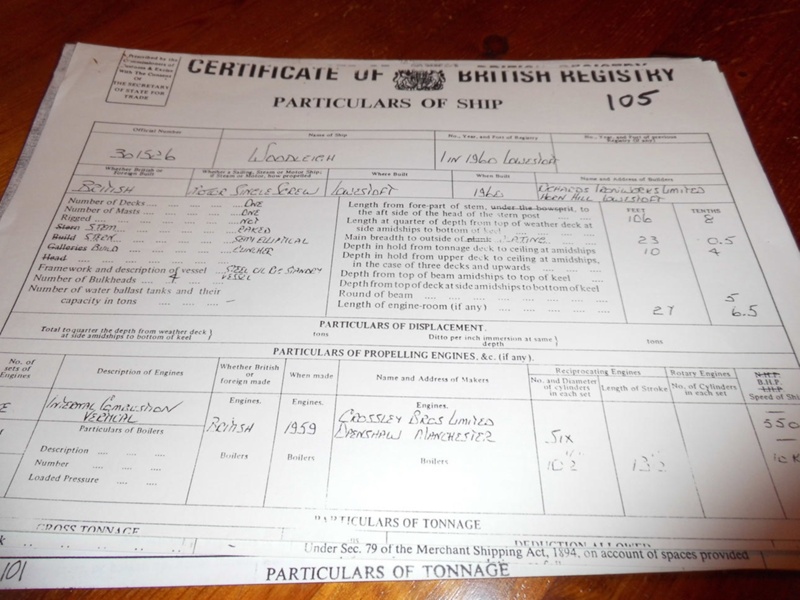 Prescribed by the
Commissioners of
Customs & Excise
with The Consent
of
THE SECRETARY
OF STATE FOR
TRADE
CERTIFICATE OF BRITISH REGISTRY
PARTICULARS OF SHIP
105
Official Number Name of Ship No., Year, and Port of Registry No., Year, and Port of previous Registry (if any)
301526 WOODLEIGH 1 IN 1960 LOWESTOFT
Whether British or Foreign Built Whether a Sailing, Steam or Motor Ship; if Steam or Motor, how propelled Where Built When Built Name and Address of Builders
BRITISH MOTOR SINGLE SCREW LOWESTOFT 1960 RICHARDS IRONWORKS LIMITED
HORN HILL LOWESTOFT
Number of Decks ONE
Number of Masts ONE
Rigged NOT
Stern STEM RAKED
Build STERN SEMI ELLIPTICAL
Galleries BUILD CLINCHER
Head
Framework and description of vessel STEEL
VESSEL
Number of Bulkheads 4
Number of water ballast tanks and their
capacity in tons -
Length from fore-part of stem, under the bowsprit, to
the aft side of the head of the stern post
Length at quarter of depth from top of weather deck at
side amidships to bottom of keel
Main breadth to outside of plank PLATING
Depth in hold from tonnage deck to ceiling at amidships
Depth in hold from upper deck to ceiling at amidships,
in the case of three decks and upwards
Depth from top of beam amidships to top of keel
Depth from top of deck at side amidships to bottom of keel
Round of beam
Length of engine-room (if any)
FEET TENTHS
106 8
23 0.5
10 4
5
27 6.5
PARTICULARS OF DISPLACEMENT.
Total to quarter the depth from weather deck at side amidships to bottom of keel } tons Ditto per inch immersion at same depth } tons
PARTICULARS OF PROPELLING ENGINES, &c. (if any).
No. of sets of Engines Description of Engines Whether British or foreign made When made Name and Address of Makers Reciprocating Engines Rotary Engines N.H.P.
B.H.P.
I.H.P.
Speed of Ship
No. and Diameter of cylinders in each set Length of Stroke No. of Cylinders in each set
Engines. Engines. Engines.
INTERNAL COMBUSTION
VERTICAL
BRITISH 1959 CROSSLEY BROS LIMITED
OPENSHAW MANCHESTER
SIX
550
Particulars of Boilers
Description
Number
Loaded Pressure
Boilers Boilers Boilers
PARTICULARS OF TONNAGE
GROSS TONNAGE DEDUCTION ALLOWED
Under Sec. 79 of the Merchant Shipping Act, 1894, on account of spaces provided
101
PARTICULARS OF TONNAGE